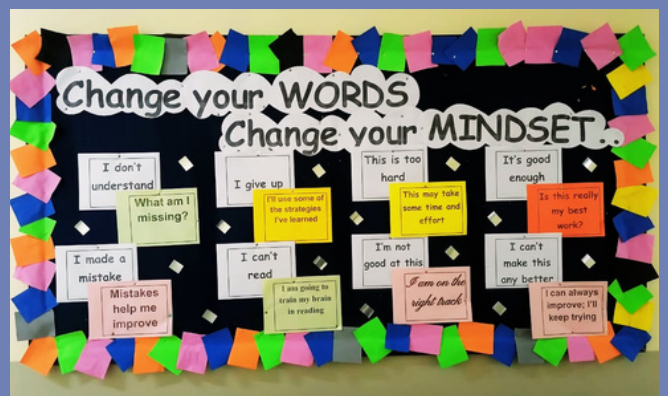 Change your WORDS
Change your MINDSET..
I don't
understand
What am I
missing?
I give up
I'll use some of
the strategies
I've learned
This is too
hard
This may take
some time and
effort
It's good
enough
Is this really
my best
work?
I made a
mistake
Mistakes
help me
improve
I can't
read
I am going to
train my brain
in reading
I'm not
good at this
I am on the
right track!
I can't
make this
any better
I can always
improve; I'll
keep trying